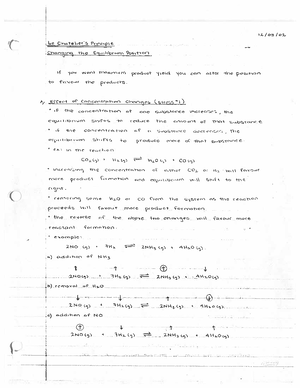 Le Chatelier's Principle
Changing the Equilibrium Position
if you want maximum product yield you can alter the position
to favour the products.
Effect of Concentration Changes (stress #1)
• if the concentration of one substance increases, the
equilibrium shifts to reduce the amount of that substance
• if the concentration of a substance decreases, the
equilibrium shifts to produce more of that substance
• ex. in the reaction
CO₂(g) + H₂(g) ⇌ H₂O(g) + CO(g)
• increasing the concentration of either CO₂ or H₂ will favour
more product formation and equilibrium will shift to the
right.
• removing some H₂O or CO from the system as the reaction
proceeds will favour more product formation
• the reverse of the above two changes will favour more
reactant formation.
• example:
2NO(g) + 5H₂ ⇌ 2NH₃(g) + 4H₂O(g)
a) addition of NH₃
2NO(g) + 5H₂ ⇌ 2NH₃(g) + 4H₂O(g)
b) removal of H₂O
2NO(g) + 5H₂ ⇌ 2NH₃(g) + 4H₂O(g)
c) addition of NO
2NO(g) + 5H₂ ⇌ 2NH₃(g) + 4H₂O(g)